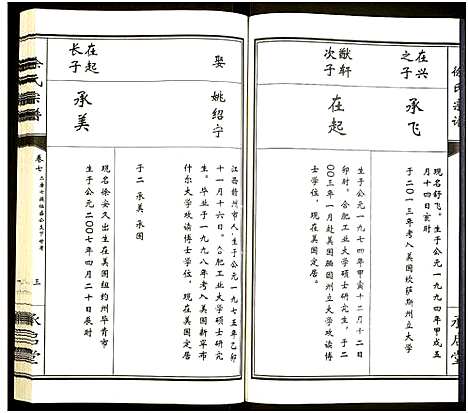 徐氏宗谱
在兴
之子
承飞
现名舒飞。生于公元一九九四年甲戌五
月十四日亥时
于二〇一三年考入美国坎萨斯州立大学
献轩
次子
在起
生于公元一九七四年甲寅十二月十二日
卯时。合肥工业大学硕士研究生，于二
〇〇三年一月赴美国
州立大学攻读博
士学位。现在美国定居。
承启堂
娶
姚绍宁
江西赣州市人，生于公元一九七五年乙卯
十一月十六日。合肥工业大学硕士研究
生。毕业于一九九八年考入美国新罕布
什尔大学攻读博士学位，现在美国定居
于二 承美 承国
在起
长子
承美
现名徐安久出生在美国纽约州毕肯市
生于公元二〇〇七年四月二十日辰时
徐氏宗谱
卷七
三
承启堂